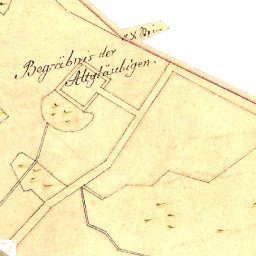 Begräbnis der
Altgläubigen.